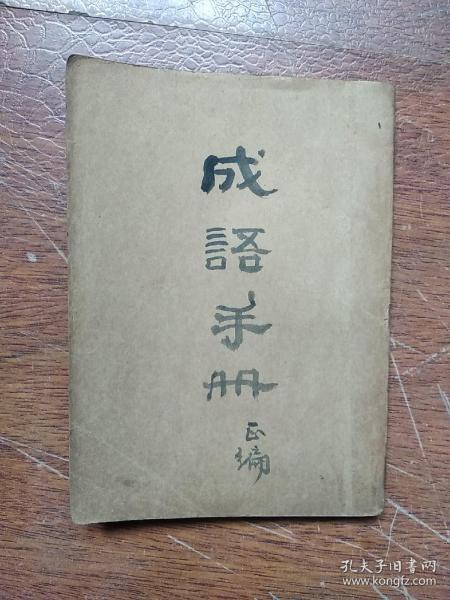 成語手册
正編
孔夫子旧书网
www.kongfz.com